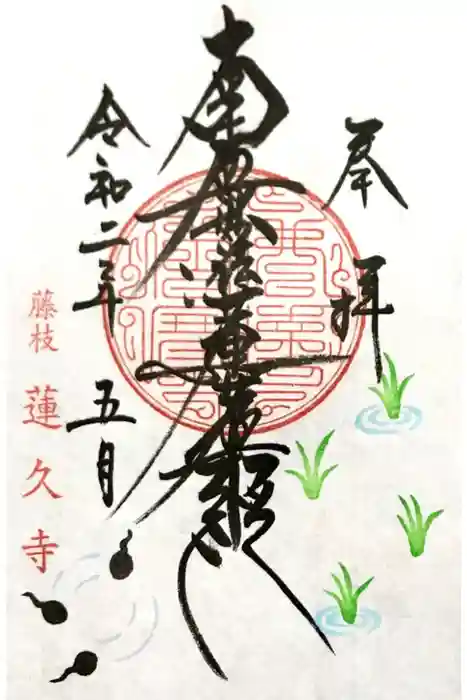 奉拝
南無妙法蓮華経
令和二年五月
藤枝
蓮久寺